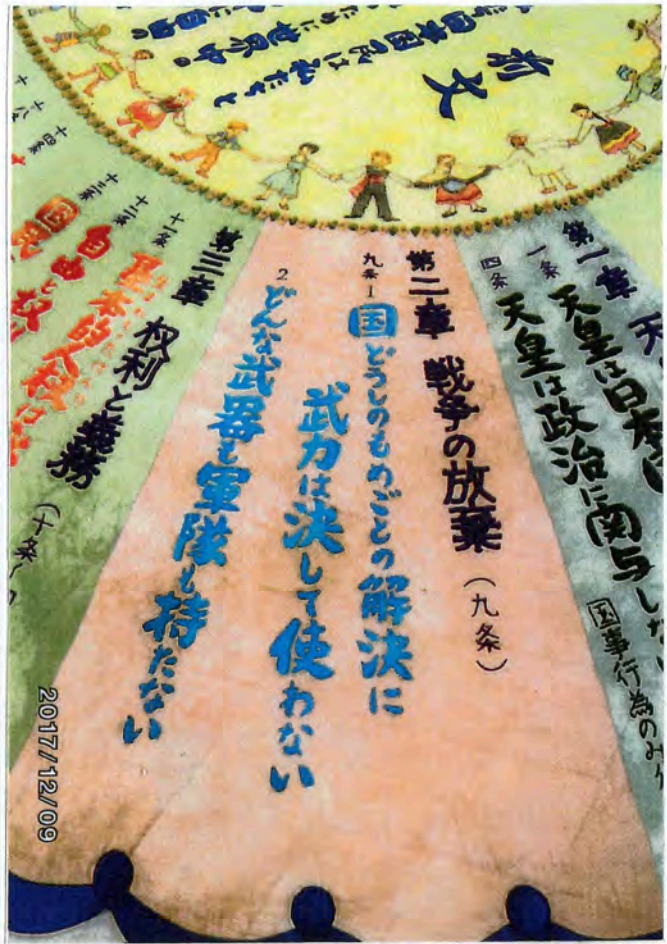 前文
国民は私たちと
ために世界中の
自由の
第一章 天
一条 天皇は日本国
四条 天皇は政治に関与しない
国事行為のみ
第二章 戦争の放棄（九条）
九条 1 国どうしのもめごとの解決に
武力は決して使わない
2 どんな武器も軍隊も持たない
第三章 権利と義務（十条〜
十一条 基本的人権は
十二条 自由と权
十三条 国民
十四条
2017/12/09